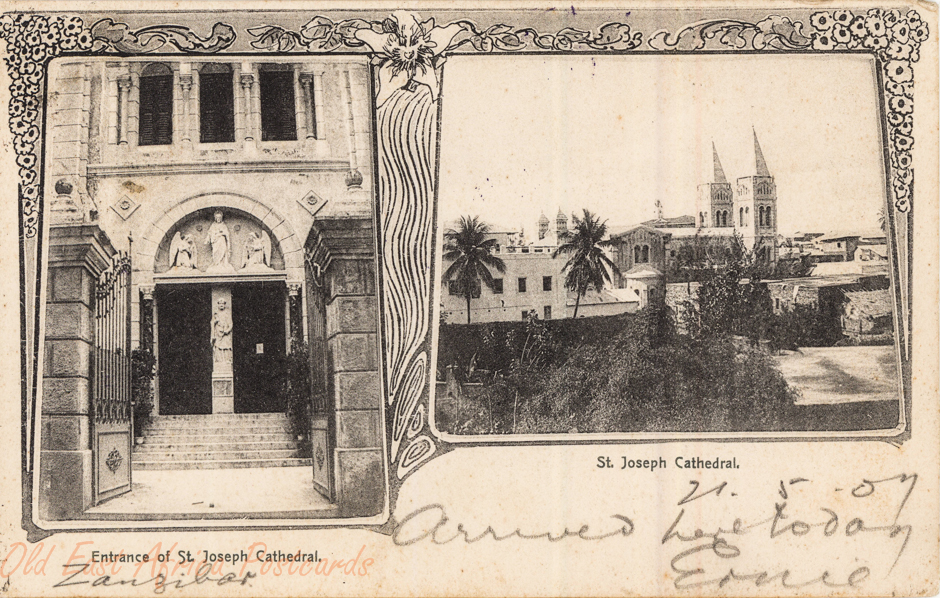 St. Joseph Cathedral.
21. 5. 07
Arrived here today
Ernie
Entrance of St. Joseph Cathedral.
Zanzibar
Old East Africa Postcards